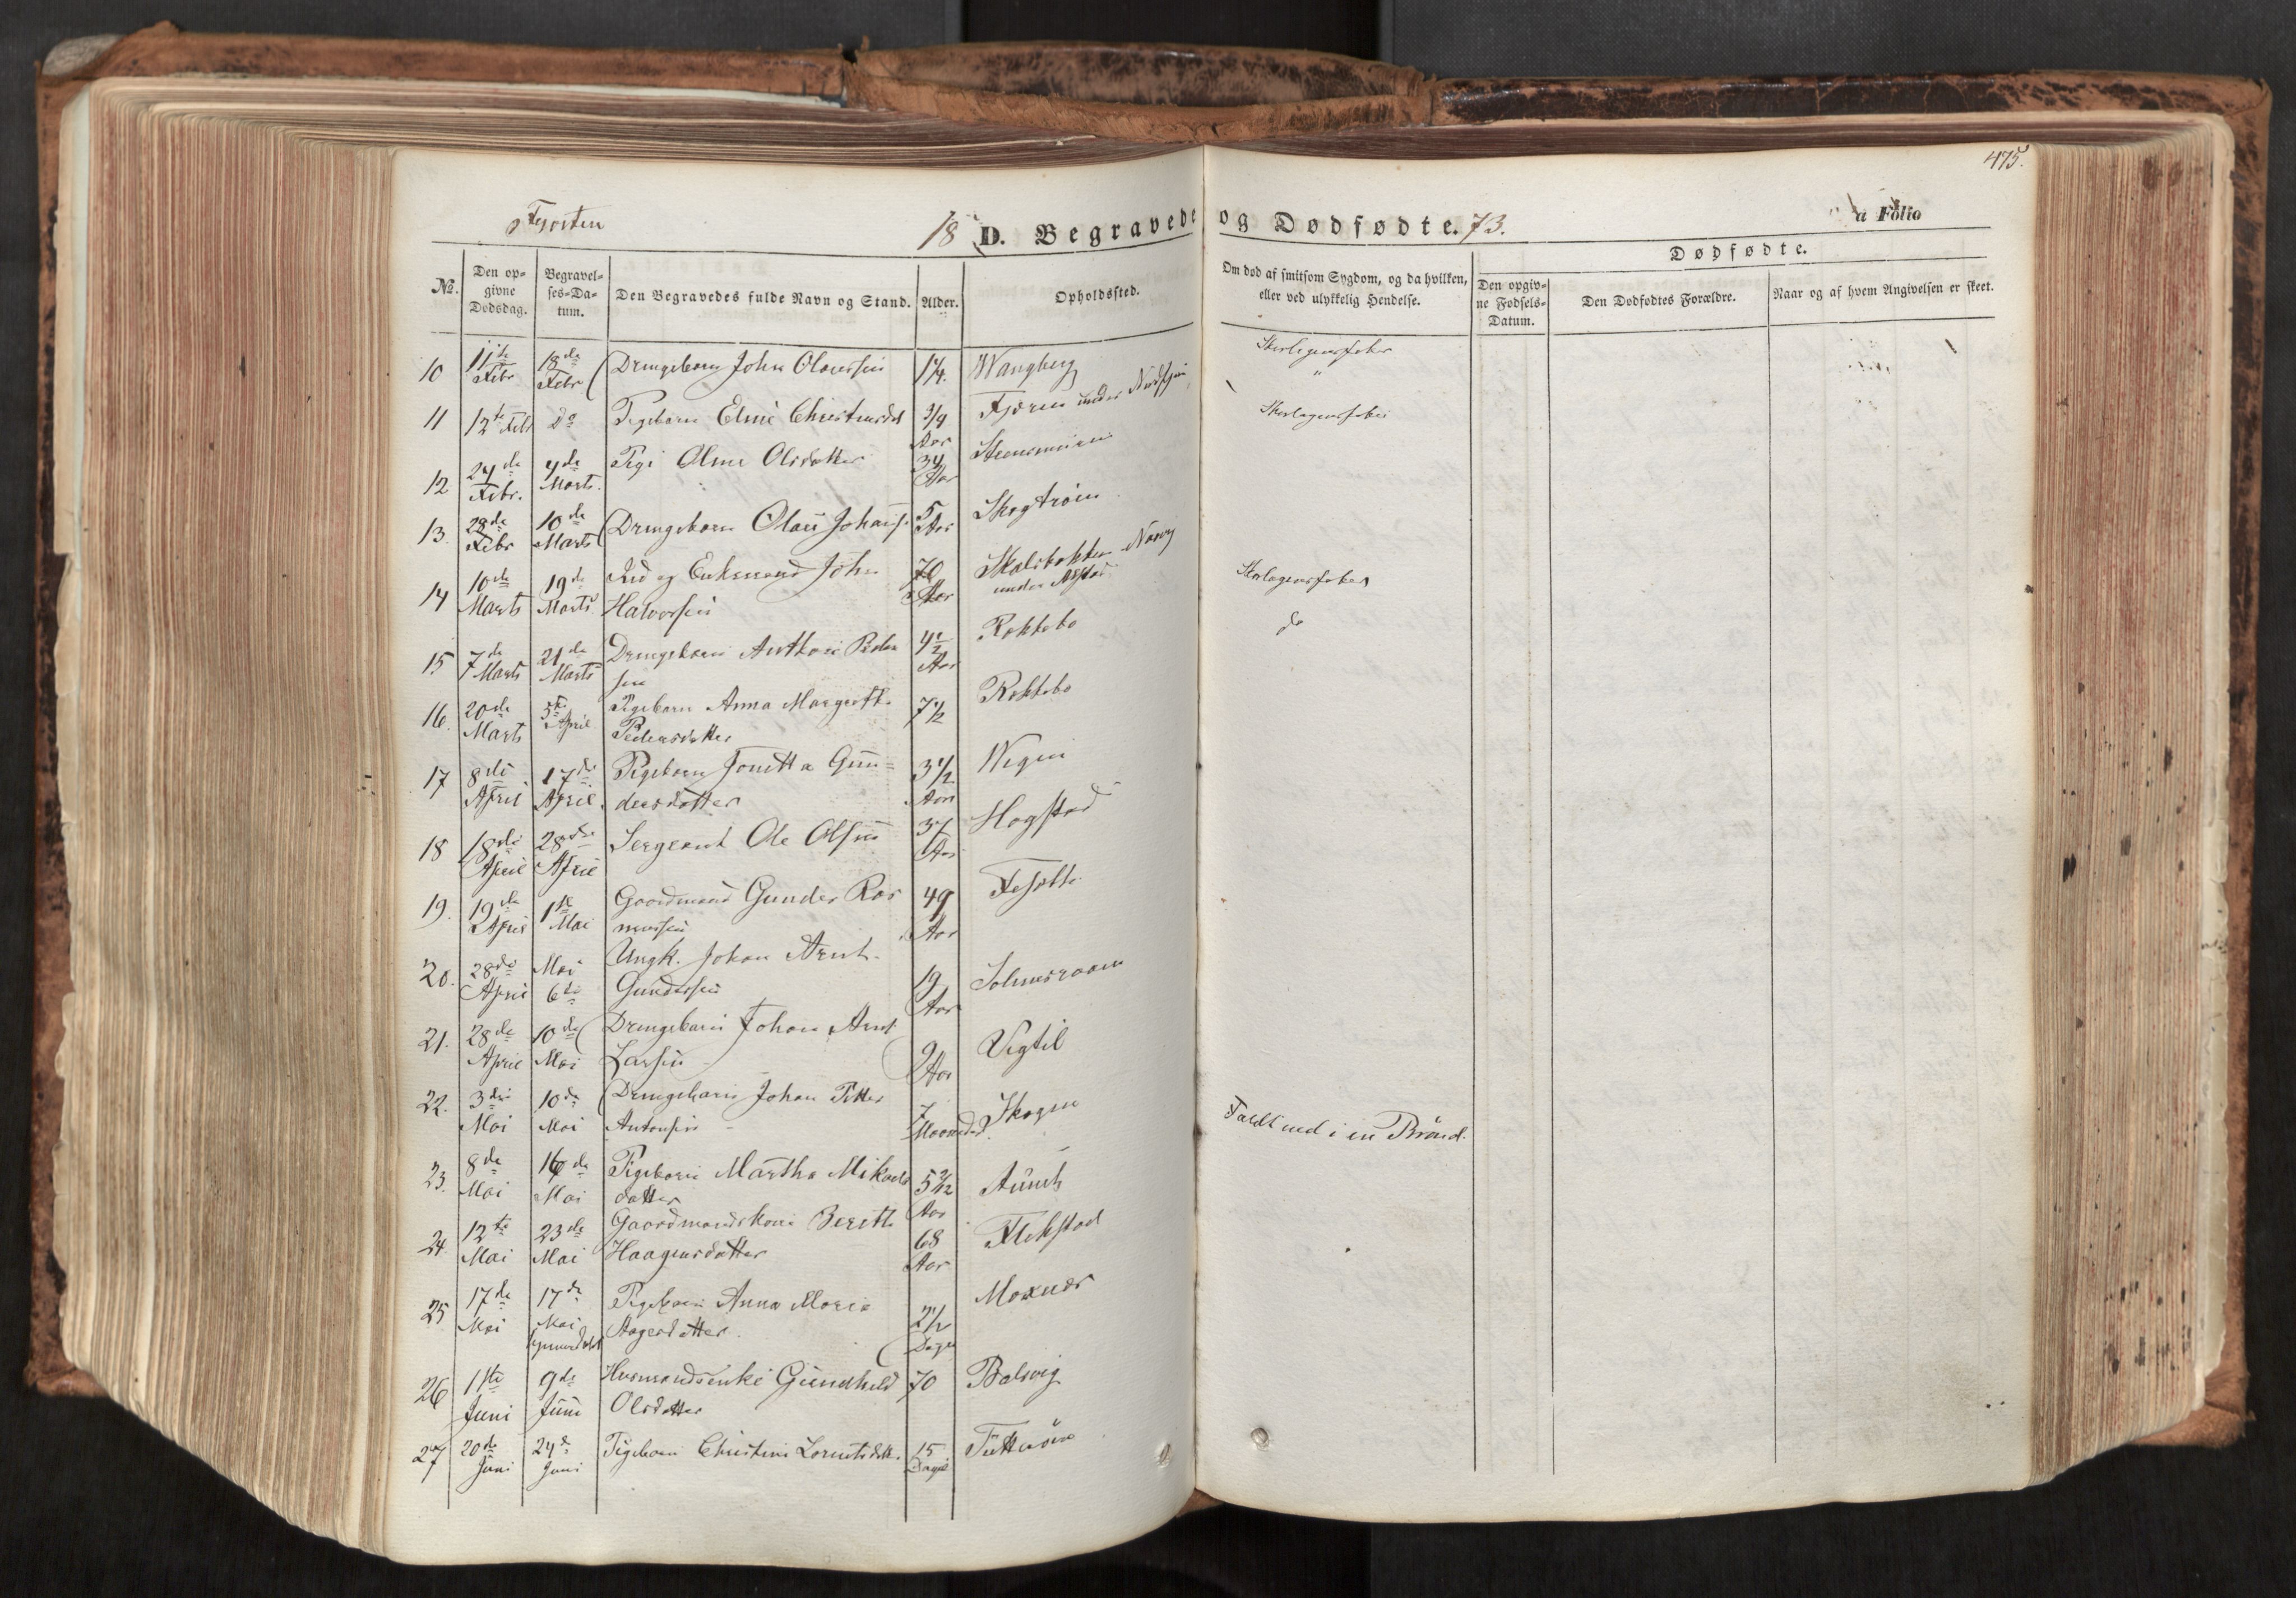 475.
Frosten
18 D. Begravede og Dødfødte. 73.
a Folio
Dødfødte.
No.
Den opgivne Dødsdag.
Begravelses-Datum.
Den Begravedes fulde Navn og Stand.
Alder.
Opholdssted.
Om død af smitsom Sygdom, og da hvilken, eller ved ulykkelig Hendelse.
Den opgivne Fødsels-Datum.
Den Dødfødtes Forældre.
Naar og af hvem Angivelsen er skeet.
10 11te Febr 18de Febr Drengebarn John Olaussen 1 1/4. Wangberg Skarlagensfeber
11 12te Febr do Pigebarn Eline 3/9 Aar Fjæren under Skarlagensfeber
12 24de Febr. 4de Marts. Pige Oline Olsdatter 34 Aar
13. 28de Febr 10de Marts Drengebarn Olaus Johans. 5 Aar Skogtrøen
14 10de Marts 19de Marts og Enkemand John 70 Aar Skarlagensfeber
Halvorsen
15 7de Marts 21de Marts Drengebarn Anthon Peder 4 1/2 Aar Rokkebo do
sen
16. 20de Marts 5te April Pigebarn Anna Margrethe 7 1/2 Rokkebo
Pedersdatter
17 8de April 17de April. Pigebarn Jonetta Gun= 3 1/2 Aar Wigen
dersdatter
18 18de April 28de April Sergeant Ole Olsen 37 Aar Hogstad
19. 19de April 1ste Mai Gaardmand Gunder Ras 49 Aar
mussen
20. 28de April Mai 6te Ungk. Johan Arnt 19 Aar
Gundersen
21. 28de April 10de Mai Drengebarn Johan Arnt 9 Aar Vigtil
Larsen
22. 3die Mai 10de Mai Drengebarn Johan Petter 7 Maaneder Skogen Faldt ned i en Brønd.
Antonsen
23. 8de Mai 16de Mai Pigebarn Martha Mikaels 5 2/12 Aar Aunet
datter
24. 12te Mai 23de Mai Gaardmandskone Beritte 68 Aar Flekstad
Haagensdatter
25 17de Mai 17de Mai Pigebarn Anna Maria 2 1/2 Dage Moxnes
Aagesdatter
26 1ste Juni 9de Juni Husmandsenke Gundhild 70 Balsvig
Olsdatter
27 20de Juni 24de Juni Pigebarn Christine Lorntsdatter 15 Dage